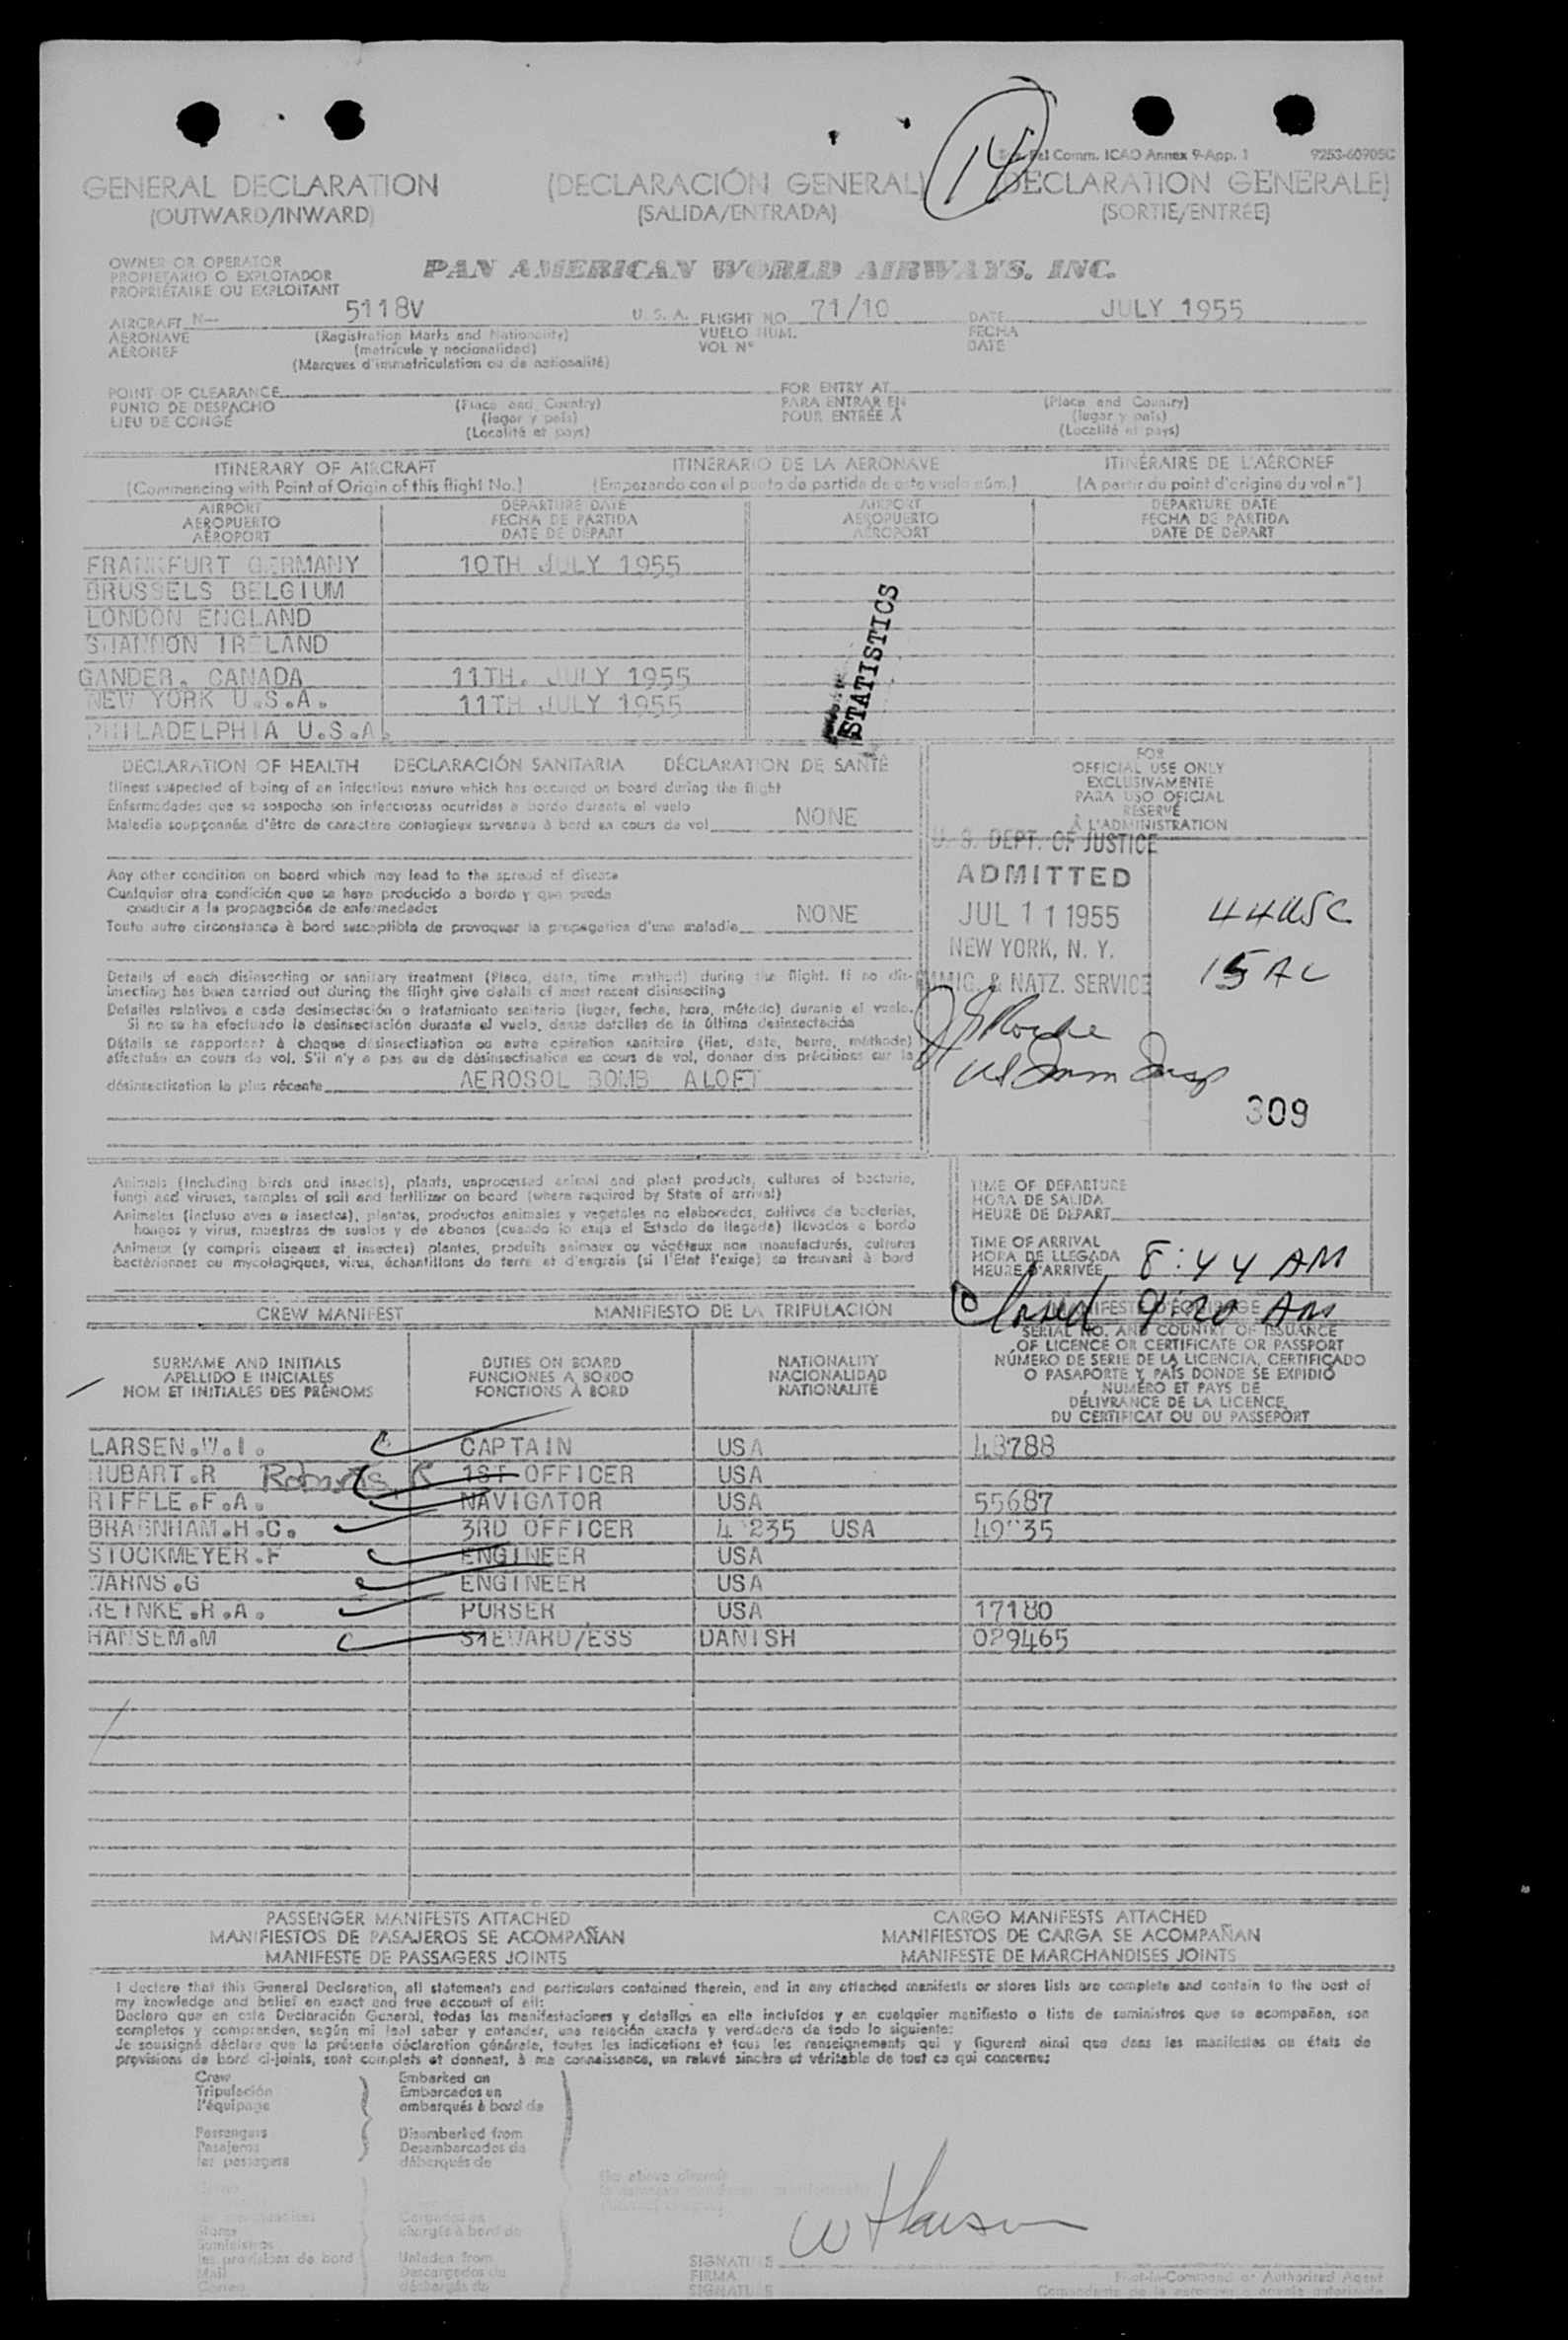 14
Comm. ICAO Annex 9-App. 1 9253-60905C
GENERAL DECLARATION (DECLARACIÓN GENERAL) (DECLARATION GENERALE)
(OUTWARD/INWARD) (SALIDA/ENTRADA) (SORTIE/ENTRÉE)
OWNER OR OPERATOR
PROPIETARIO O EXPLOTADOR
PROPRIÉTAIRE OU EXPLOITANT
PAN AMERICAN WORLD AIRWAYS, INC.
AIRCRAFT N— 5118V U. S. A. FLIGHT NO. 71/10 DATE JULY 1955
AERONAVE (Registration Marks and Nationality) VUELO NUM. FECHA
AÉRONEF (matrícula y nacionalidad) VOL Nº DATE
(Marques d'immatriculation ou de nationalité)
POINT OF CLEARANCE FOR ENTRY AT
PUNTO DE DESPACHO (Place and Country) PARA ENTRAR EN (Place and Country)
LIEU DE CONGÉ (lugar y país) POUR ENTRÉE À (lugar y país)
(Localité et pays) (Localité et pays)
ITINERARY OF AIRCRAFT ITINERARIO DE LA AERONAVE ITINÉRAIRE DE L'AÉRONEF
(Commencing with Point of Origin of this flight No.) (Empezando con el punto de partida de este vuelo núm.) (A partir du point d'origine du vol nº)
AIRPORT DEPARTURE DATE AIRPORT DEPARTURE DATE
AEROPUERTO FECHA DE PARTIDA AEROPUERTO FECHA DE PARTIDA
AÉROPORT DATE DE DÉPART AÉROPORT DATE DE DÉPART
FRANKFURT GERMANY 10TH JULY 1955
BRUSSELS BELGIUM
LONDON ENGLAND
SHANNON IRELAND
GANDER. CANADA 11TH. JULY 1955
NEW YORK U.S.A. 11TH JULY 1955
PHILADELPHIA U.S.A.
STATISTICS
DECLARATION OF HEALTH DECLARACIÓN SANITARIA DÉCLARATION DE SANTÉ
Illness suspected of being of an infectious nature which has occured on board during the flight
Enfermedades que se sospecha son infecciosas ocurridas a bordo durante el vuelo
Maladie soupçonnée d'être de caractère contagieux survenue à bord en cours de vol NONE
Any other condition on board which may lead to the spread of disease
Cualquier otra condición que se haya producido a bordo y que pueda
conducir a la propagación de enfermedades
Toute autre circonstance à bord susceptible de provoquer la propagation d'une maladie NONE
Details of each disinsecting or sanitary treatment (Place, date, time method) during the flight. If no dis-
insecting has been carried out during the flight give details of most recent disinsecting
Detalles relativos a cada desinsectación o tratamiento sanitario (lugar, fecha, hora, método) durante el vuelo.
Si no se ha efectuado la desinsectación durante el vuelo, dense detalles de la última desinsectación
Détails se rapportant à chaque désinsectisation ou autre opération sanitaire (lieu, date, heure, méthode)
effectuée en cours de vol. S'il n'y a pas eu de désinsectisation en cours de vol, donner des précisions sur la
désinsectisation la plus récente AEROSOL BOMB ALOFT
FOR
OFFICIAL USE ONLY
EXCLUSIVAMENTE
PARA USO OFICIAL
RÉSERVÉ
À L'ADMINISTRATION
U. S. DEPT. OF JUSTICE
ADMITTED
JUL 11 1955
NEW YORK, N. Y.
IMMIG. & NATZ. SERVICE
44 USC
15 AC
US Imm Insp
309
Animals (including birds and insects), plants, unprocessed animal and plant products, cultures of bacteria,
fungi and viruses, samples of soil and fertilizer on board (where required by State of arrival)
Animales (incluso aves e insectos), plantas, productos animales y vegetales no elaborados, cultivos de bacterias,
hongos y virus, muestras de suelos y de abonos (cuando lo exija el Estado de llegada) llevados a bordo
Animaux (y compris oiseaux et insectes) plantes, produits animaux ou végétaux non manufacturés, cultures
bactériennes ou mycologiques, virus, échantillons de terre et d'engrais (si l'Etat l'exige) se trouvant à bord
TIME OF DEPARTURE
HORA DE SALIDA
HEURE DE DÉPART
TIME OF ARRIVAL
HORA DE LLEGADA
HEURE D'ARRIVÉE 8:44 AM
Closed 9:20 AM
CREW MANIFEST MANIFIESTO DE LA TRIPULACIÓN MANIFESTE D'ÉQUIPAGE
SURNAME AND INITIALS
APELLIDO E INICIALES
NOM ET INITIALES DES PRÉNOMS
DUTIES ON BOARD
FUNCIONES A BORDO
FONCTIONS À BORD
NATIONALITY
NACIONALIDAD
NATIONALITÉ
SERIAL NO. AND COUNTRY OF ISSUANCE
OF LICENCE OR CERTIFICATE OR PASSPORT
NÚMERO DE SERIE DE LA LICENCIA, CERTIFICADO
O PASAPORTE Y PAÍS DONDE SE EXPIDIÓ
NUMÉRO ET PAYS DE
DÉLIVRANCE DE LA LICENCE,
DU CERTIFICAT OU DU PASSEPORT
LARSEN.W.I. CAPTAIN USA 43788
HUBART.R 1ST OFFICER USA
RIFFLE.F.A. NAVIGATOR USA 55687
H.C. 3RD OFFICER USA
STOCKMEYER.F ENGINEER USA
WAHNS.G ENGINEER USA
REINKE.R.A. PURSER USA 17180
HANSEM.M STEWARD/ESS DANISH 029465
PASSENGER MANIFESTS ATTACHED CARGO MANIFESTS ATTACHED
MANIFIESTOS DE PASAJEROS SE ACOMPAÑAN MANIFIESTOS DE CARGA SE ACOMPAÑAN
MANIFESTE DE PASSAGERS JOINTS MANIFESTE DE MARCHANDISES JOINTS
I declare that this General Declaration, all statements and particulars contained therein, and in any attached manifests or stores lists are complete and contain to the best of
my knowledge and belief an exact and true account of all:
Declaro que en esta Declaración General, todas las manifestaciones y detalles en ella incluídos y en cualquier manifiesto o lista de suministros que se acompañan, son
completos y comprenden, según mi leal saber y entender, una relación exacta y verdadera de todo lo siguiente:
Je soussigné déclare que la présente déclaration générale, toutes les indications et tous les renseignements qui y figurent ainsi que dans les manifestes ou états de
provisions de bord ci-joints, sont complets et donnent, à ma connaissance, un relevé sincère et véritable de tout ce qui concerne:
Crew Embarked on
Tripulación Embarcados en
l'équipage embarqués à bord de
Passengers Disembarked from
Pasajeros Desembarcados de
les passagers débarqués de
Stores chargés à bord de
Suministros
les provisions de bord Unladen from
Mail Descargados de
Correo déchargés de
SIGNATURE
FIRMA
SIGNATURE
Pilot-in-Command or Authorized Agent